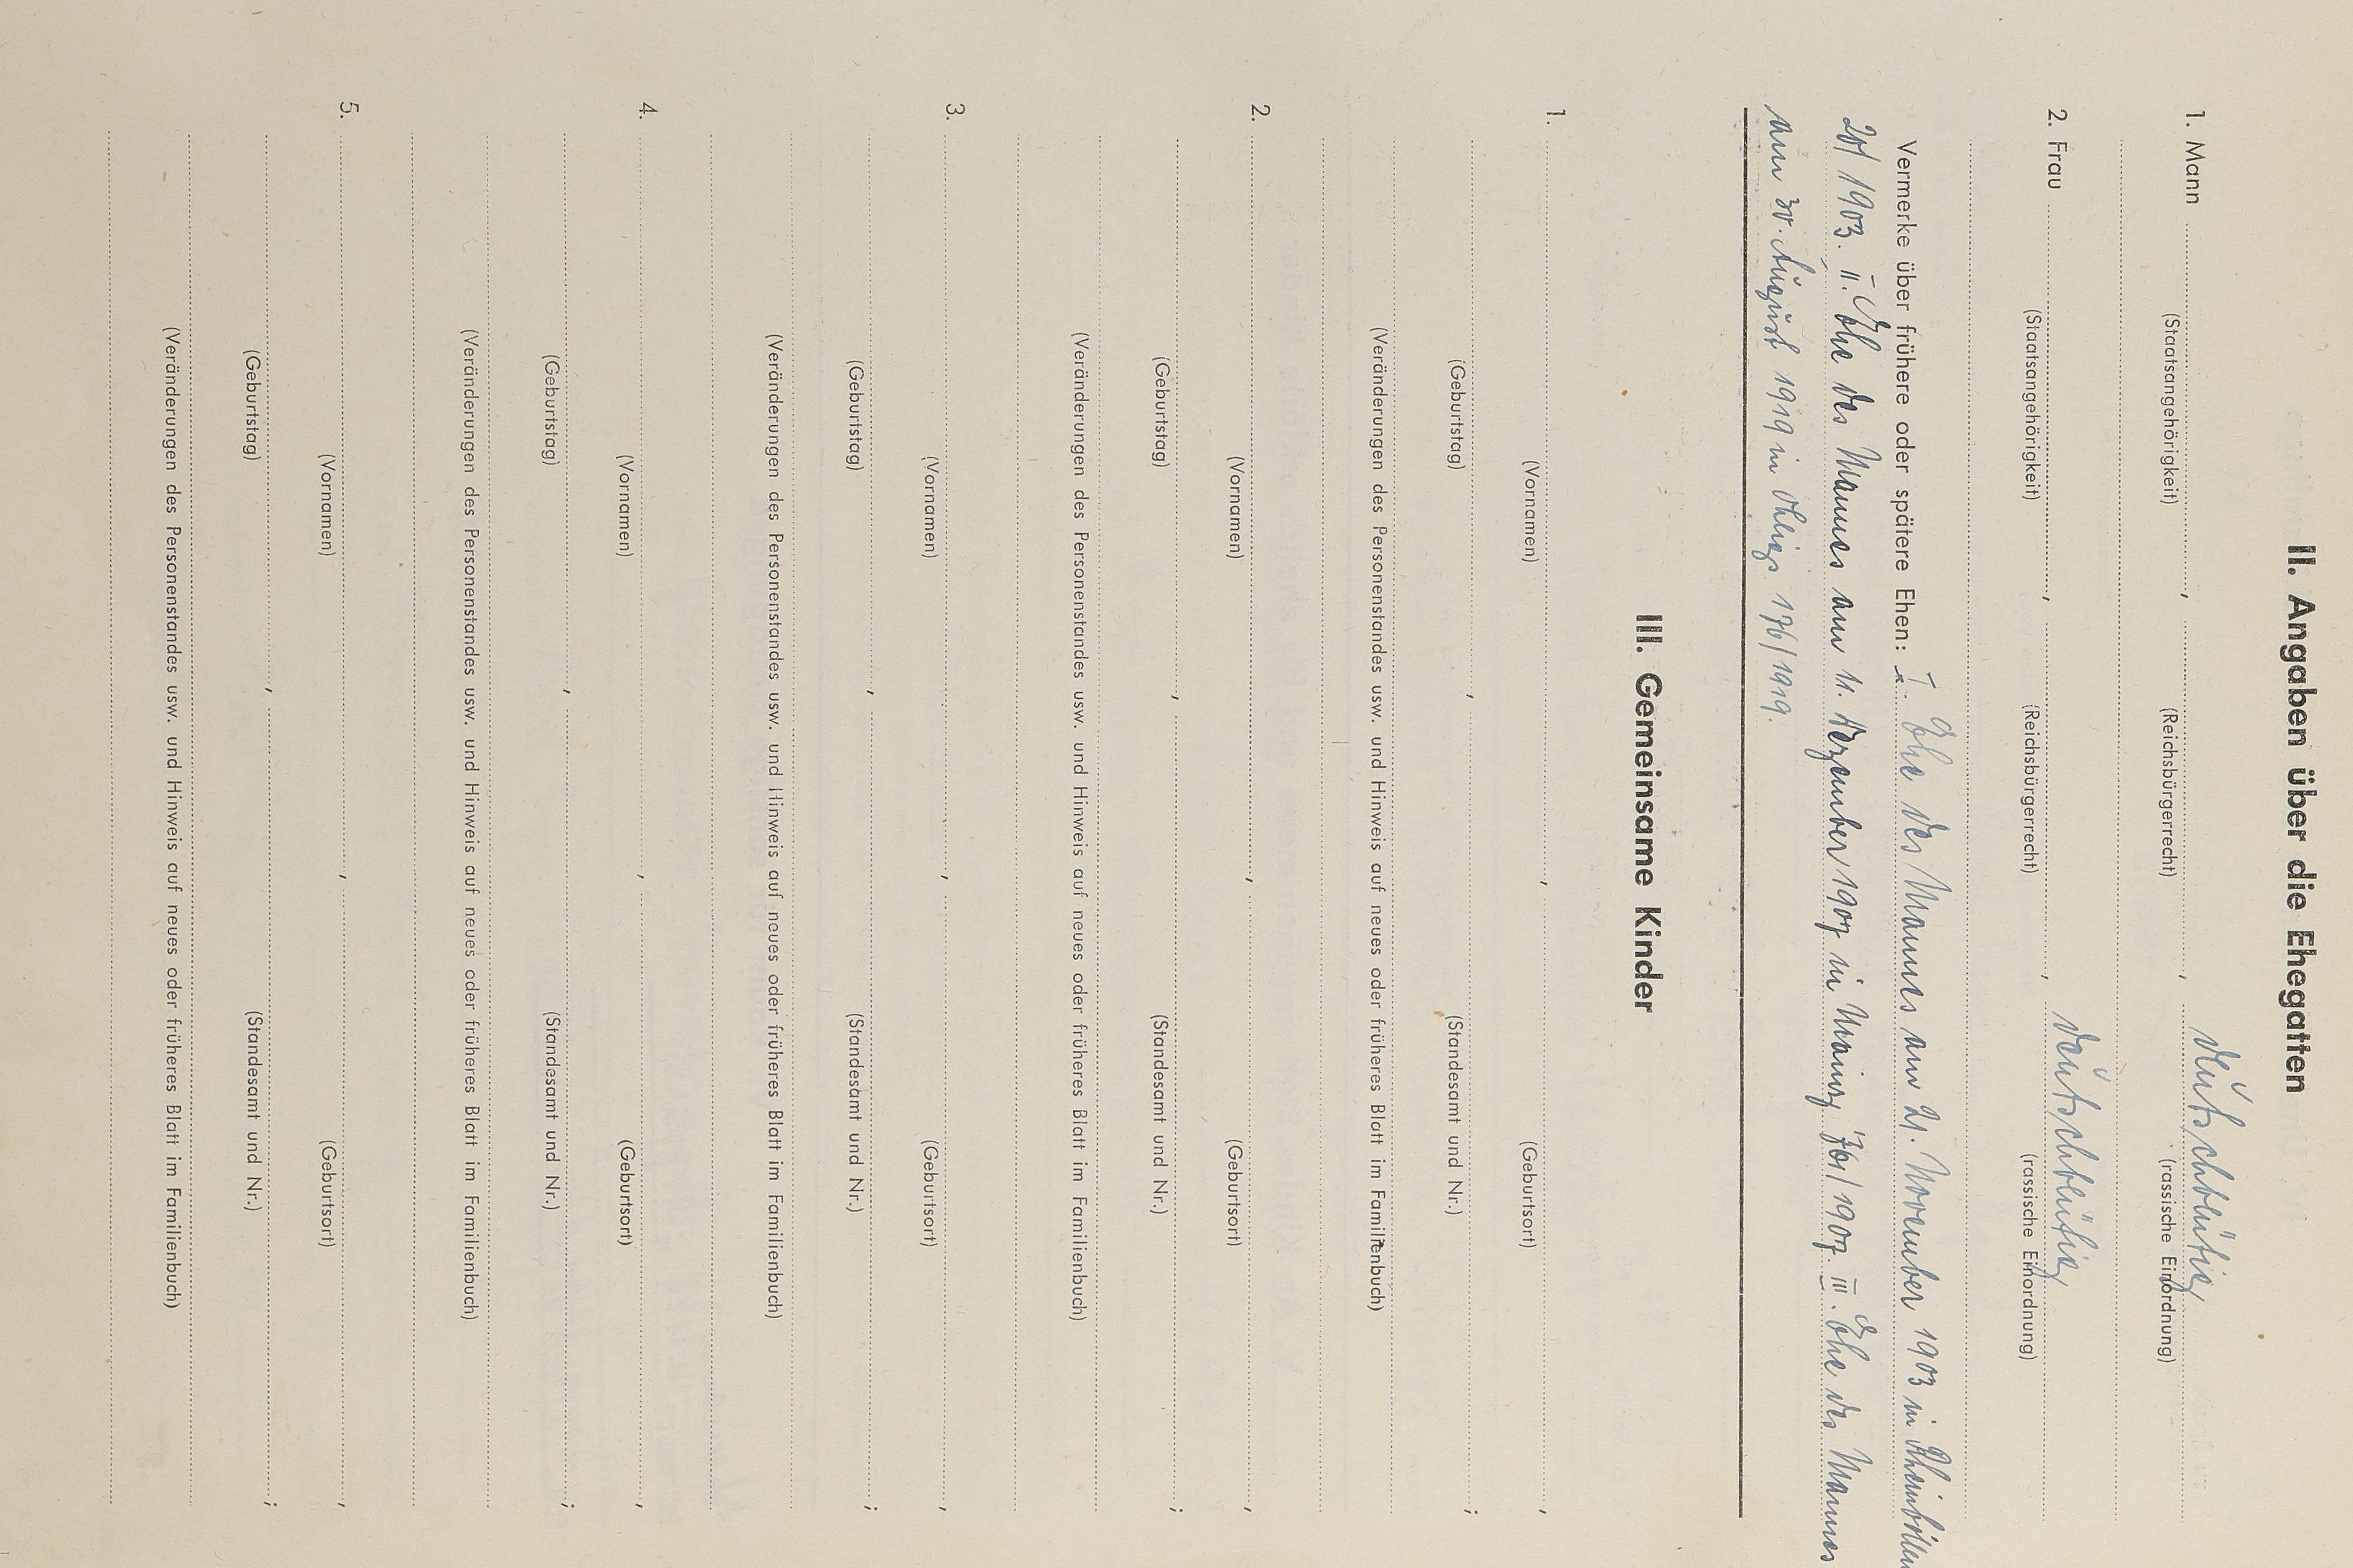 II. Angaben über die Ehegatten
1. Mann , , deutschblütig
(Staatsangehörigkeit) (Reichsbürgerrecht) (rassische Einordnung)
2. Frau , , deutschblütig
(Staatsangehörigkeit) (Reichsbürgerrecht) (rassische Einordnung)
Vermerke über frühere oder spätere Ehen: I. Ehe des Mannes am 21. November 1903 in
1903. II. Ehe des Mannes am 11. Dezember 1907 in Mainz 761/1907. III. Ehe des Mannes
am 30. August 1919 in Ohligs 176/1919.
III. Gemeinsame Kinder
1. , ,
(Vornamen) (Geburtsort)
, ;
(Geburtstag) (Standesamt und Nr.)
(Veränderungen des Personenstandes usw. und Hinweis auf neues oder früheres Blatt im Familienbuch)
2. , ,
(Vornamen) (Geburtsort)
, ;
(Geburtstag) (Standesamt und Nr.)
(Veränderungen des Personenstandes usw. und Hinweis auf neues oder früheres Blatt im Familienbuch)
3. , ,
(Vornamen) (Geburtsort)
, ;
(Geburtstag) (Standesamt und Nr.)
(Veränderungen des Personenstandes usw. und Hinweis auf neues oder früheres Blatt im Familienbuch)
4. , ,
(Vornamen) (Geburtsort)
, ;
(Geburtstag) (Standesamt und Nr.)
(Veränderungen des Personenstandes usw. und Hinweis auf neues oder früheres Blatt im Familienbuch)
5. , ,
(Vornamen) (Geburtsort)
, ;
(Geburtstag) (Standesamt und Nr.)
(Veränderungen des Personenstandes usw. und Hinweis auf neues oder früheres Blatt im Familienbuch)